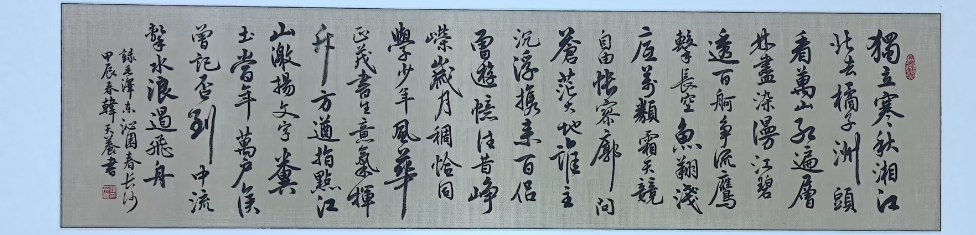 獨立寒秋湘江
北去橘子洲頭
看萬山紅遍層
林盡染漫江碧
透百舸爭流鷹
擊長空魚翔淺
底萬類霜天競
自由悵寥廓問
蒼茫大地誰主
沉浮携來百侶
曾遊憶往昔崢
嶸歲月稠恰同
學少年風華
正茂書生意氣揮
斥方遒指點江
山激揚文字糞
土當年萬户侯
曾記否到中流
擊水浪遏飛舟
錄毛澤東沁園春長沙
甲辰春韓天養書